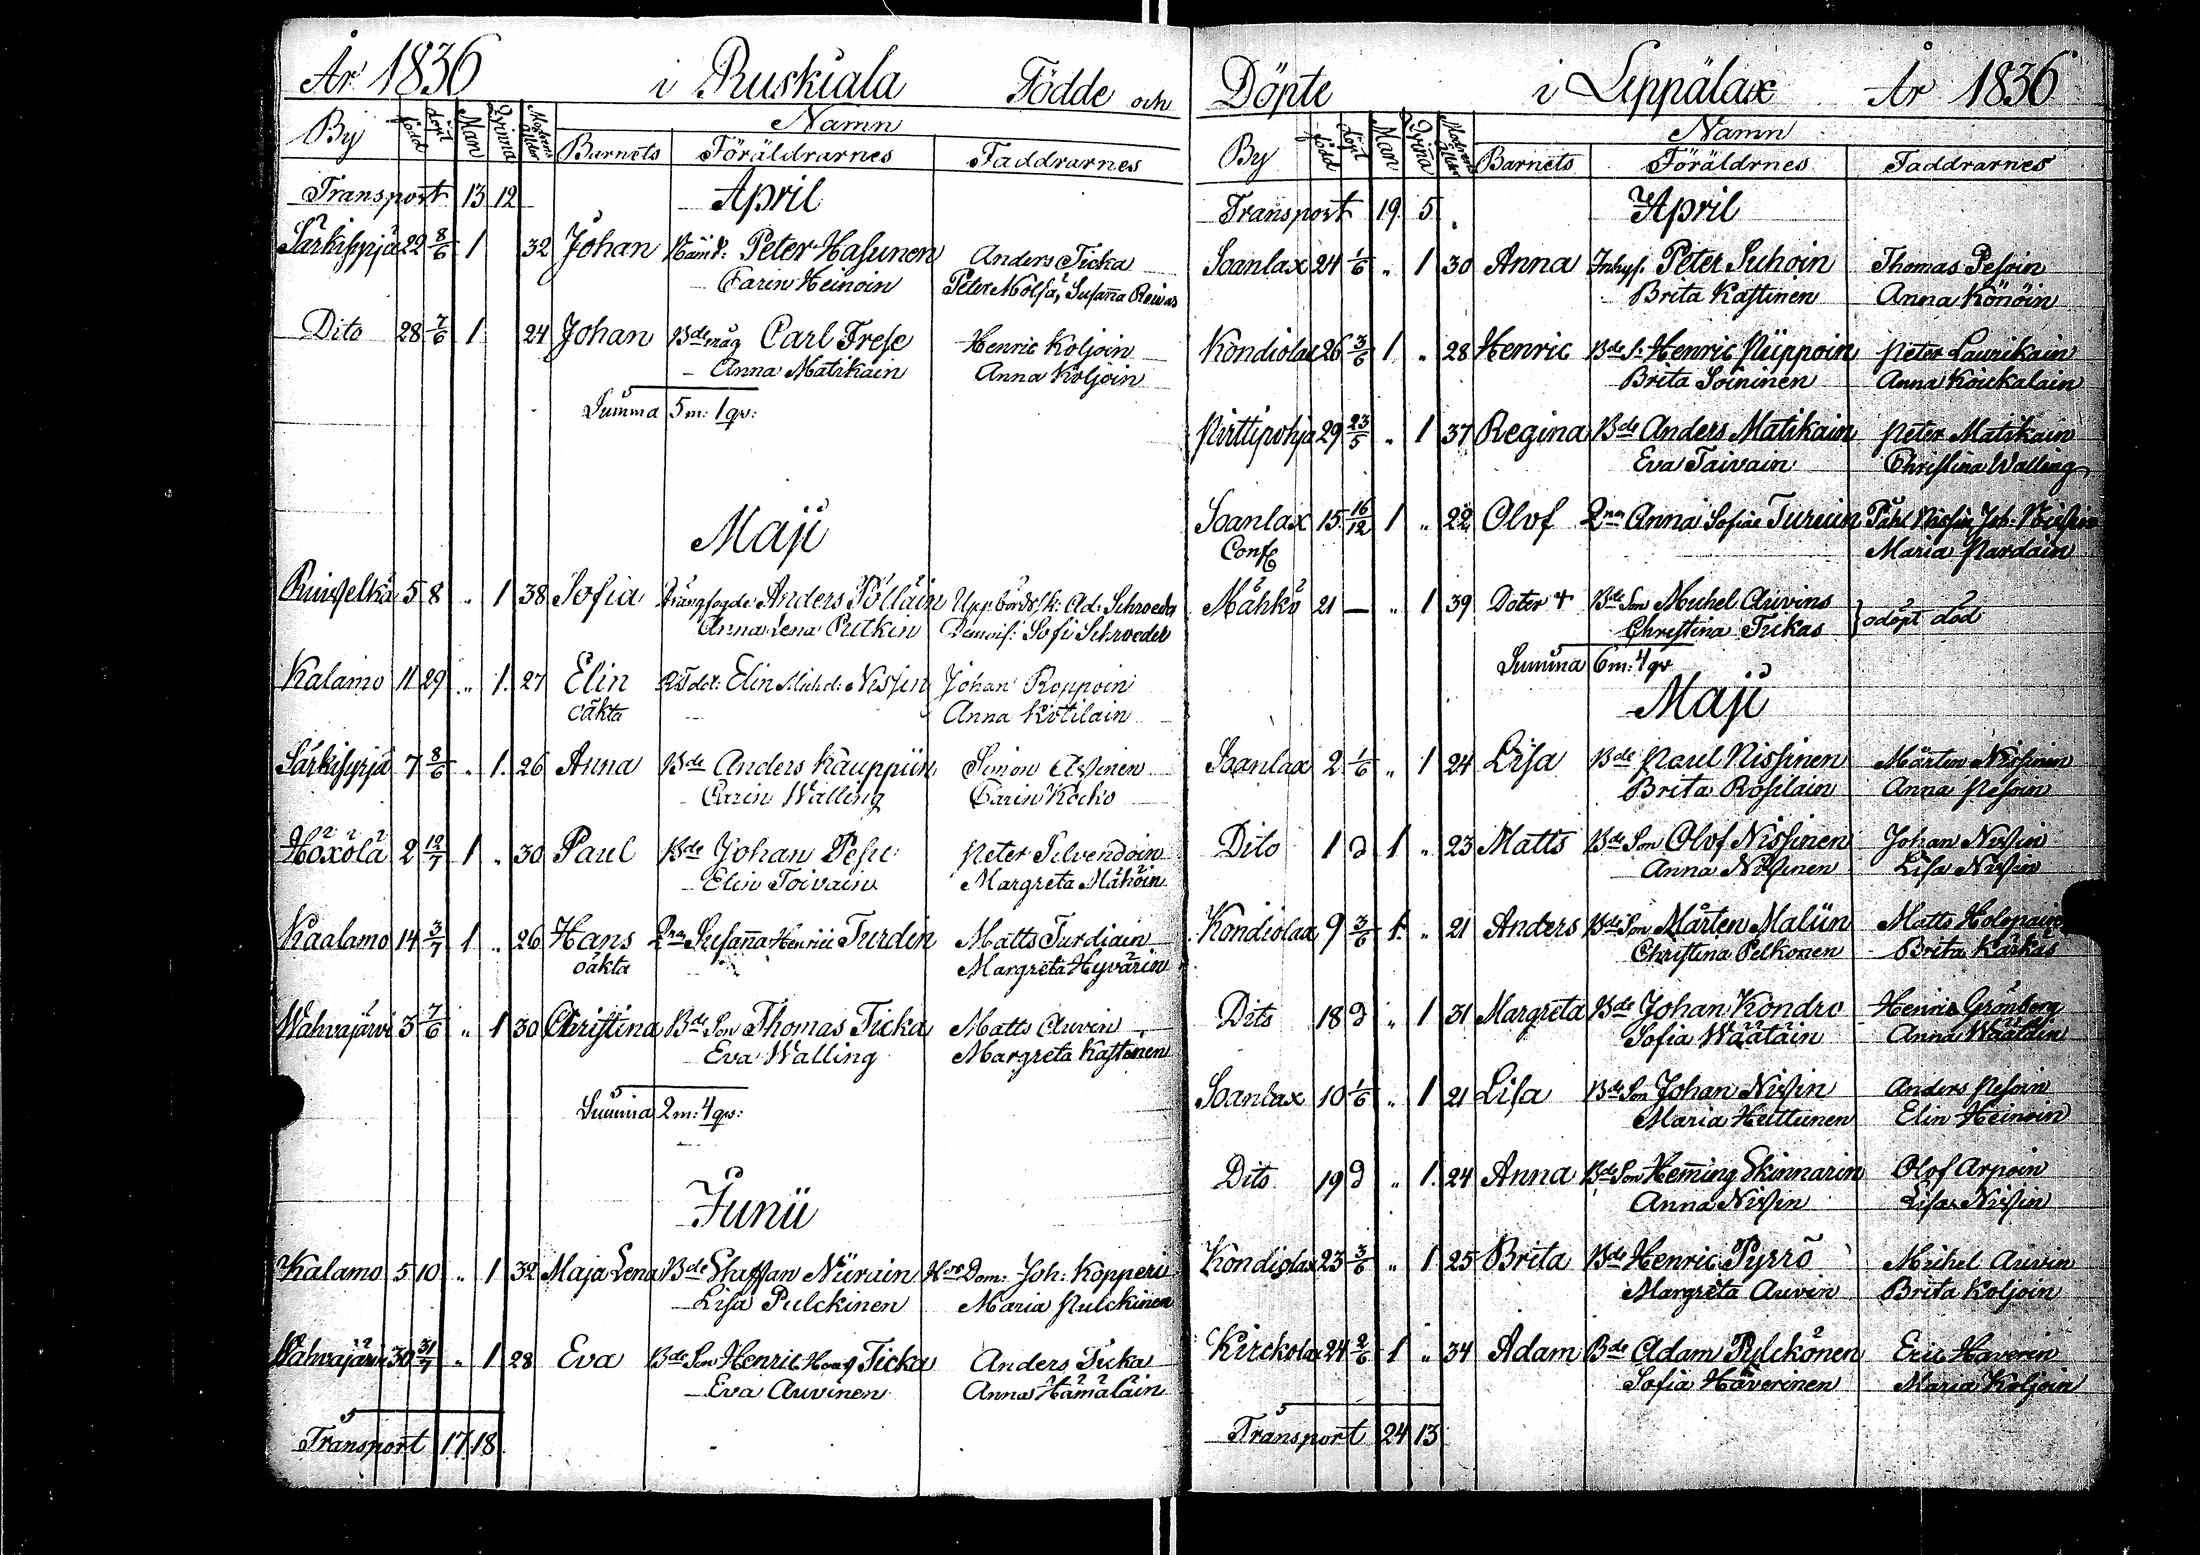 År 1836 i Ruskiala Födde och
By född döpt Man Qvinna Modrens ålder Namn
Barnets Föräldrarnes Faddrarnes
Transport 13 12 April
Särkisyrjä 29 8/6 1 32 Johan Peter Hasunen Anders Ticka
Carin Heinoin Peter Mölsä, Susanna
Dito 28 7/6 1 24 Johan Bde måg Carl Frese Henric Koljoin
Anna Matikain Anna Koljoin
Summa 5 m: 1 qv:
Maji
5 8 „ 1 38 Sofia Drängfogde Anders Pölläin Uppbörds sk: Ad: Schroeder
Anna Lena Putkin Demois: Sofi Schroeder
Kalamo 11 29 „ 1. 27 Elin Elin Mich.d: Nissin Johan Roppoin
oäkta Anna Kotilain
Särkisyrjä 7 8/6 „ 1. 26 Anna Bde Anders Kauppiin Simon Assinen
Carin Walling Carin Kocko
Höxölä 2 12/7 1 „ 30 Paul Bde Johan Pesu Peter Silvendoin
Elin Toivain Margreta Mähöin
Kaalamo 14 3/7 1 „ 26 Hans Qnn Susanna Henrici Turdin Matts Turdiain
oäkta Margreta Hyvärin
Wahvajärvi 3 7/6 „ 1 30 Christina Bde Son Thomas Ticka Matts Auvin
Eva Walling Margreta Kastinen
Summa 2 m: 4 qv:
Junii
Kalamo 5 10 „ 1 32 Maja Lena Bde Staffan Niirain Dom: Joh: Kopperi
Lisa Pulckinen Maria Pulckinen
Wahvajärvi 30 31/7 „ 1 28 Eva Bde Son Henric Ticka Anders Ticka
Eva Auvinen Anna Hämäläin
Transport 17 18
Döpte i Leppälax År 1836
By född döpt Man Qvina Modrens ålder Namn
Barnets Föräldrnes Faddrarnes
Transport 19. 5 April
Soanlax 24 1/6 „ 1 30 Anna Inhys. Peter Suhoin Thomas Pesoin
Brita Kastinen Anna Könöin
Kondiolax 26 3/6 1 „ 28 Henric Bde S: Henric Piippoin Peter Laurikain
Brita Soininen Anna Kouckalain
Pirttipohja 29 23/5 „ 1 37 Regina Bde Anders Matikain Peter Matikain
Eva Taivain Christina Walling
Soanlax 15 16/12 1 „ 22 Olof Qnn Anna Sofia Påhl Nissin, Joh:
Maria Pardain
Mähkö 21 — „ 1 39 Doter + Bde Son Michel Auvins } odöpt död
Christina Tickas
Summa 6 m: 4 qv
Maji
Soanlax 2 1/6 „ 1 24 Lisa Bde Paul Nissinen Mårten Nissinen
Brita Rossilain Anna Pesoin
Dito 1 d 1 „ 23 Matts Bde Son Olof Nissinen Johan Nissin
Anna Nissinen Lisa Nissin
Kondiolax 9 3/6 1. „ 21 Anders Bde Son Mårten Maliin Matts Holopain
Christina Pelkonen Brita Karkas
Dito 18 d „ 1 31 Margreta Bde Johan Kondro Henric Grönberg
Sofia Wäätäin Anna Wäätäin
Soanlax 10 1/6 „ 1 21 Lisa Bde Son Johan Nissin Anders Pesoin
Maria Huttunen Elin Heinoin
Dito 19 d „ 1. 24 Anna Bde Son Heming Skinnarin Olof Arpoin
Anna Nissin Lisa Nissin
Kondiolax 23 3/6 „ 1 25 Brita Bde Henric Pyrrö Michel Auvin
Margreta Auvin Brita Koljoin
Kirckolax 24 2/6 1 „ 34 Adam Bde Adam Pylckönen Eric Haverin
Sofia Häverinen Maria Koljoin
Transport 24 13